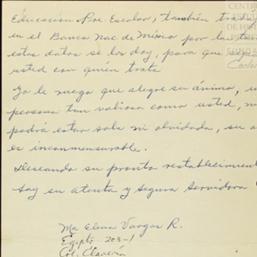 Educación Pre Escolar, también trab
en el Banco Nac de México por la
estos datos se los doy, para que
usted con quién trata
Yo le ruego alegre se ánimo, u
persona tan valiosa como usted, n
podrá estar sola ni olvidada, su a
es inconmensurable.
Deseando su pronto restablecimient
soy su atenta y segura servidora
Ma Elena Vargas R.
Egipto 203-1
Col. Clavería